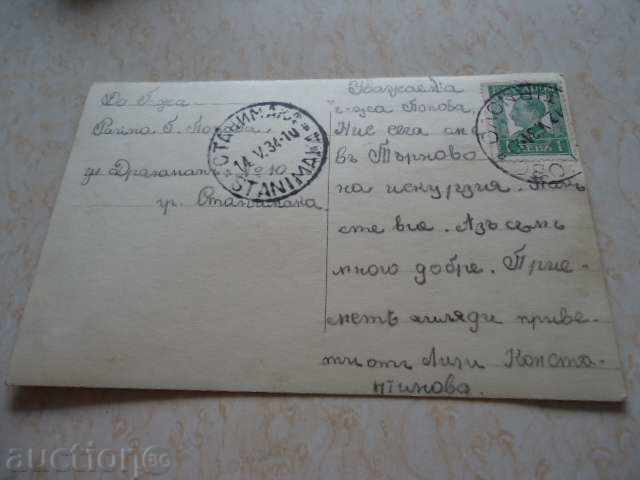 До Г-жа
Райна Б. Попова
ул. Драгоман № 10
гр. Станимака
СТАНИМАКА
14.V.34-10
STANIMAKA
Уважаема
г-жа Попова,
Ние сега сме
въ Търново
на искурзия. Какъ
сте вие. Азъ съмъ
много добре. Прие-
метъ хиляди приве-
ти отъ Лили Конста-
нтинова.
ЛЕВЪ 1
auction BG